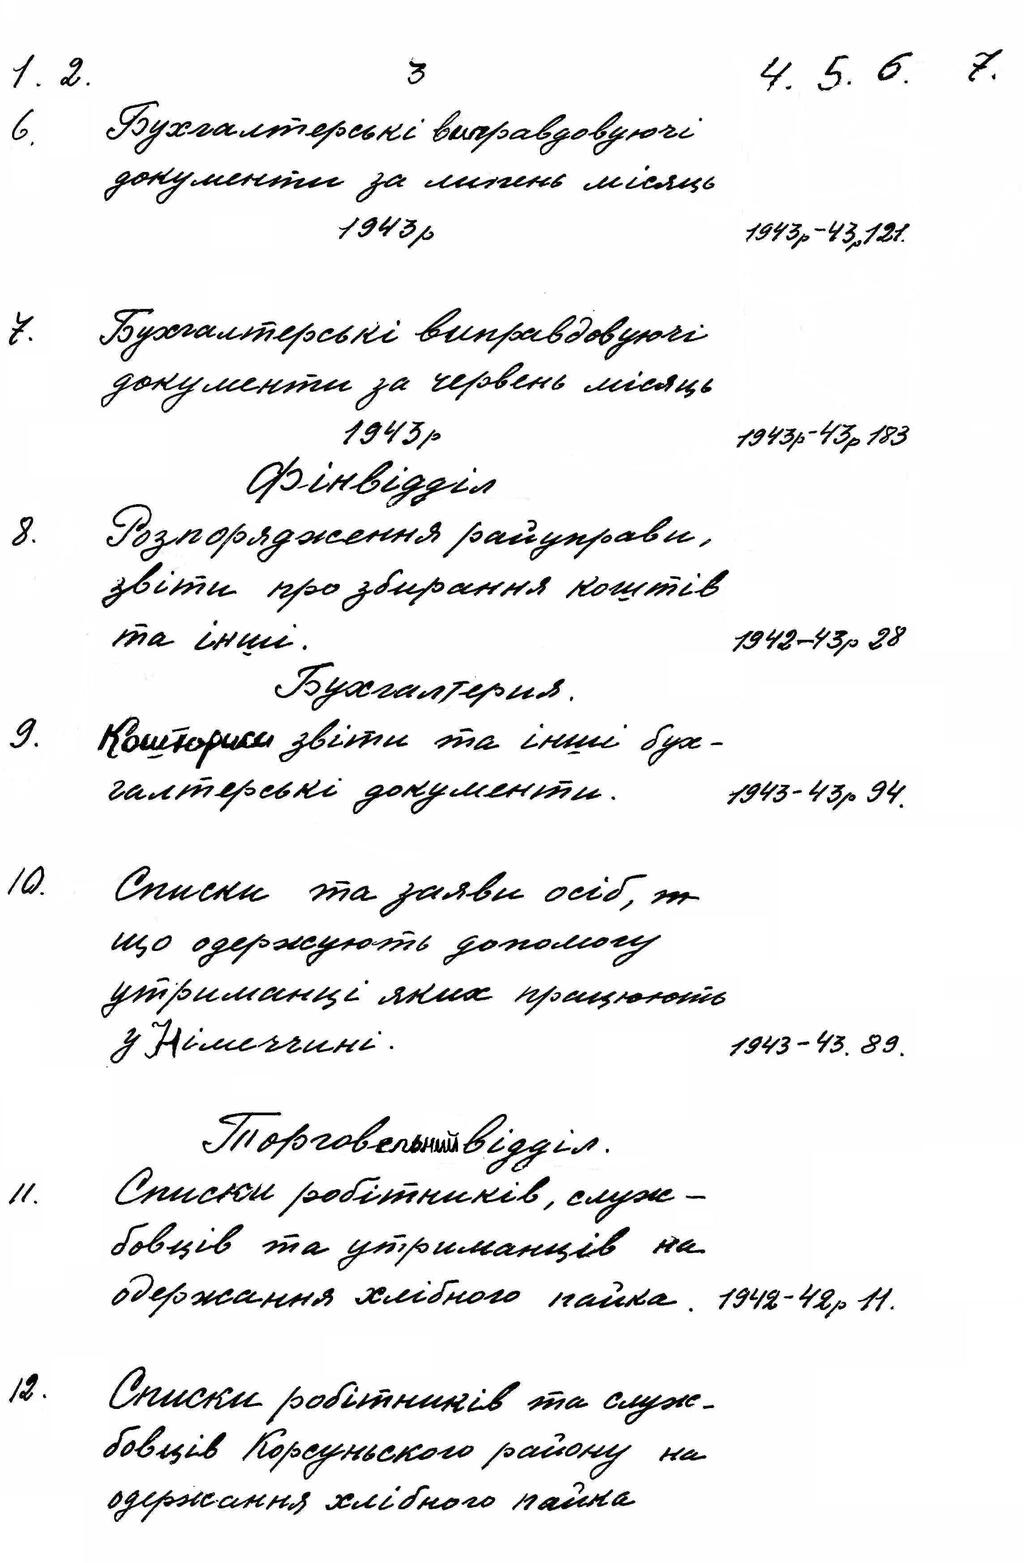 1. 2. 3 4. 5. 6. 7.
6. Бухгалтерські виправдовуючі
документи за липень місяць
1943р 1943р-43р 121.
7. Бухгалтерські виправдовуючі
документи за червень місяць
1943р 1943р-43р 183
Фінвідділ
8. Розпорядження райуправи,
звіти про збирання коштів
та інші. 1942-43р 28
Бухгалтерия.
9. Кошториси звіти та інші бух-
галтерські документи. 1943-43р 94.
10. Списки та заяви осіб,
що одержують допомогу
утриманці яких працюють
у Німеччині. 1943-43. 89.
Торговельний відділ.
11. Списки робітників, служ-
бовців та утриманців на
одержання хлібного пайка. 1942-42р 11.
12. Списки робітників та служ-
бовців Корсуньского району на
одержання хлібного пайка